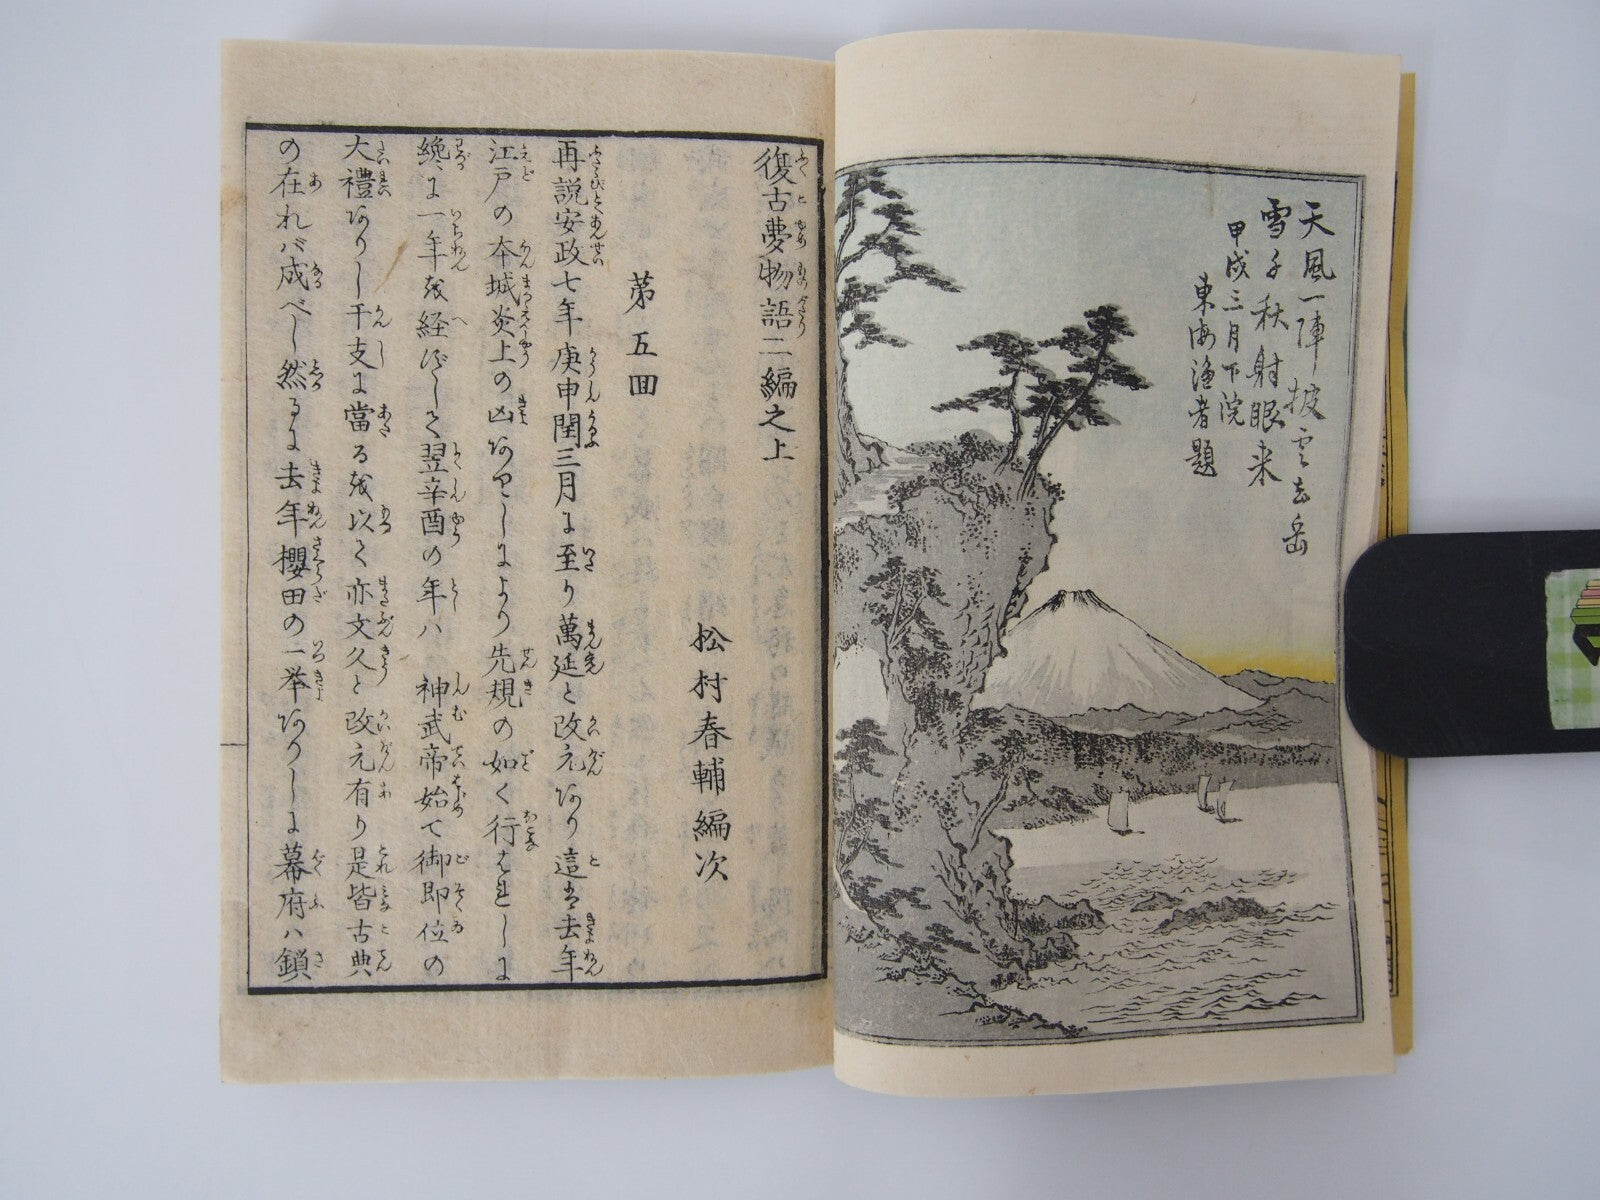 天風一陣披雲去岳
雪千秋射眼来
甲戌三月下浣
東海漁者題
復古夢物語二編之上
松村春輔編次
第五回
再説安政七年庚申閏三月に至り萬延と改元ありしハ去年
江戸の本城炎上の凶ありしにより先規の如く行はれしに
纔に一年を経ずして翌辛酉の年ハ神武帝始て御即位の
大禮ありし干支に當るを以て亦文久と改元有り是皆古典
の在れバ成べし然るに去年櫻田の一挙ありしに幕府ハ鎖